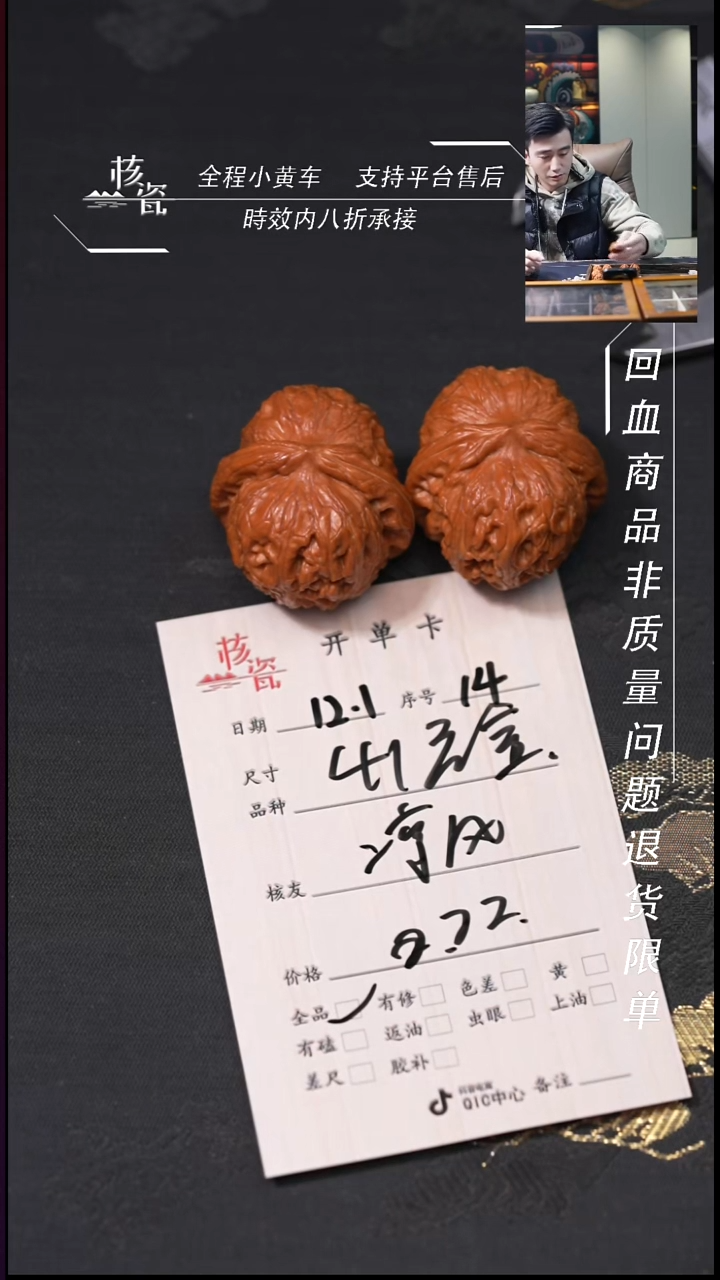 核瓷
全程小黄车 支持平台售后
時效内八折承接
回血商品非质量问题退货限单
核瓷
开单卡
日期 12.1 序号 14
尺寸 41
品种
核友 淳风
价格 972.
全品 有修 色差 黄
有磕 返油 虫眼 上油
差尺 胶补
抖音电商
QIC中心 备注